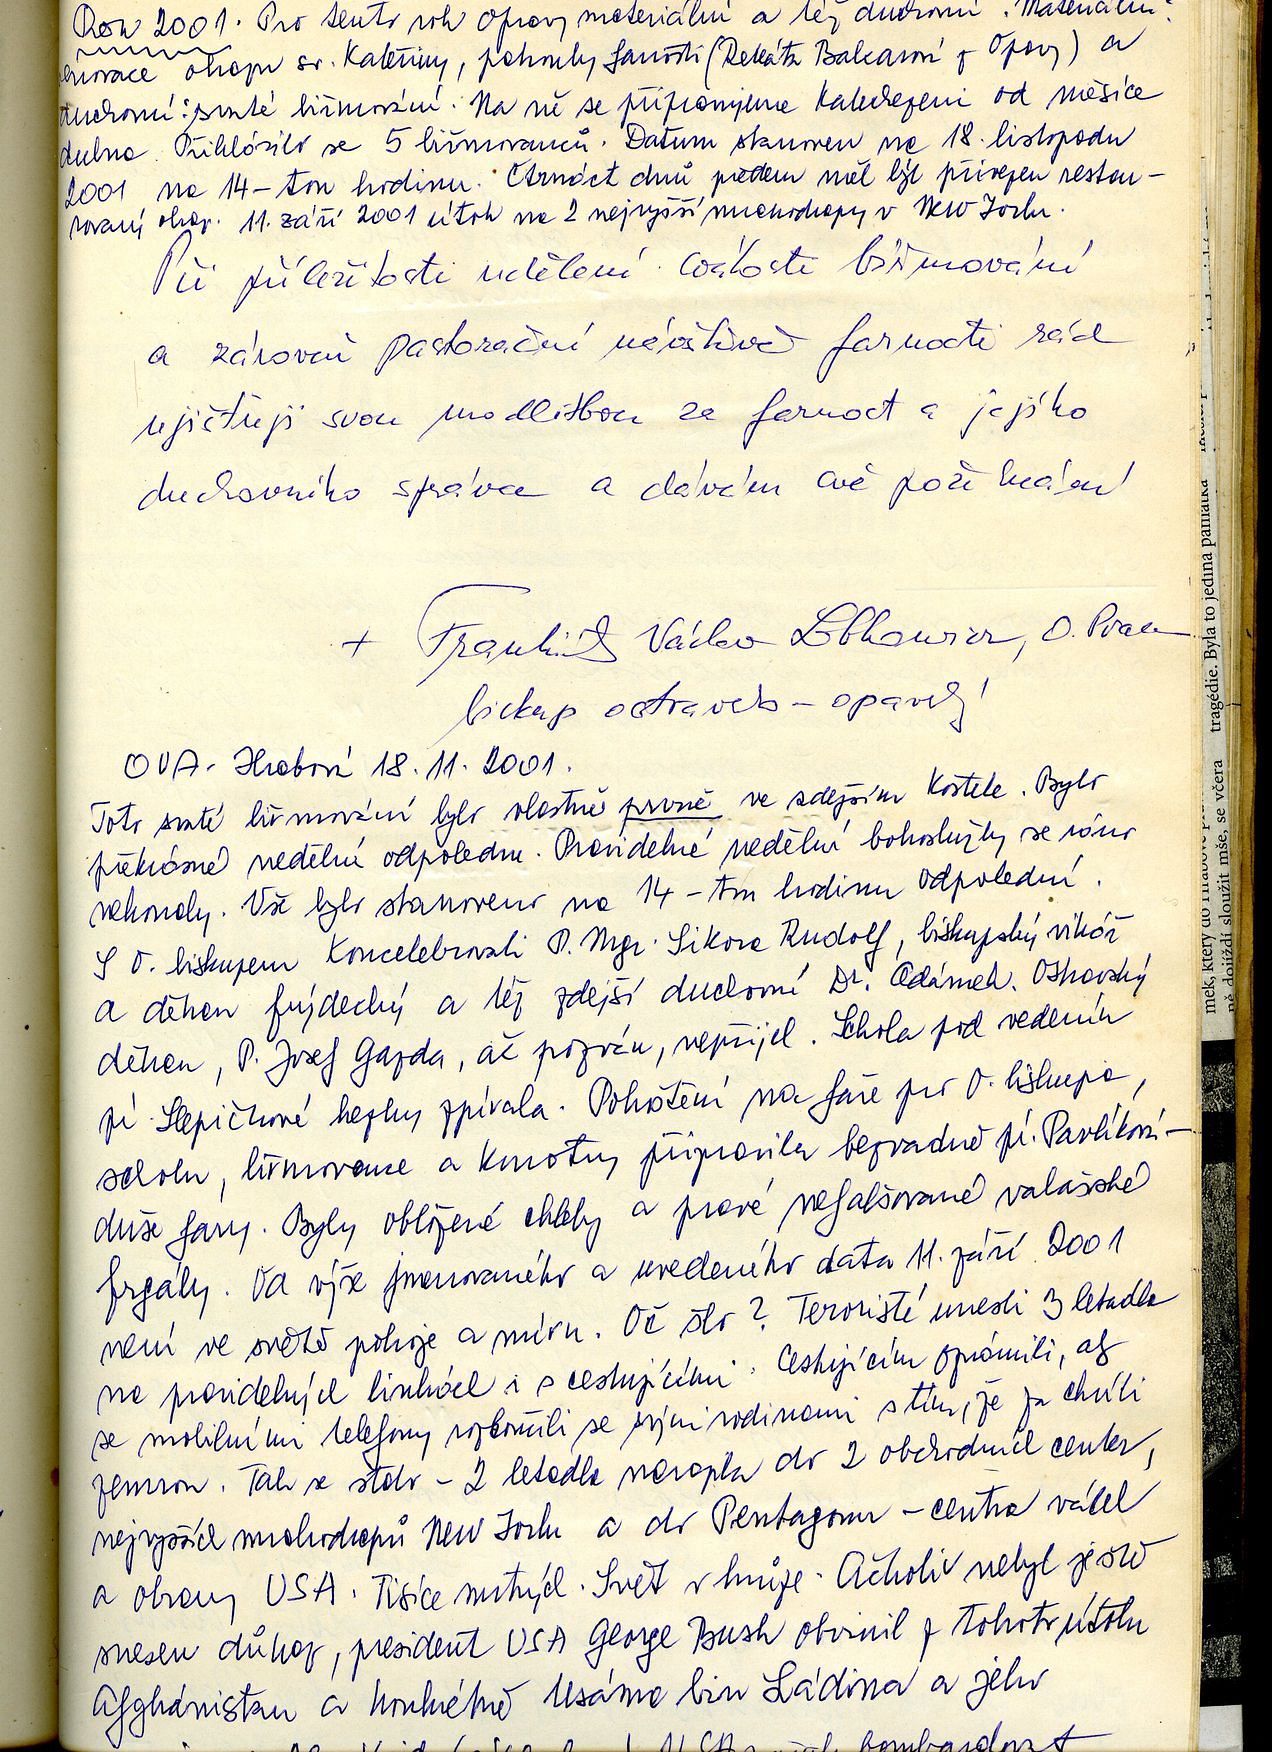 Rok 2001. Pro tento rok opravy materiální a též duchovní. Materiální:
renovace obrazu sv. Kateřiny, patronky farnosti (Renáta Balcarová z Opavy) a
duchovní: svaté biřmování. Na ně se připravujeme katechezemi od měsíce
dubna. Přihlásilo se 5 biřmovanců. Datum stanoven na 18. listopadu
2001 na 14-tou hodinu. Čtrnáct dnů předem měl být přivezen restau-
rovaný obraz. 11. září 2001 útok na 2 nejvyšší mrakodrapy v New Yorku.
Při příležitosti udělení svátosti biřmování
a zároveň pastorační návštěvě farnosti rád
ujišťuji svou modlitbou za farnost a jejího
duchovního správce a dávám své požehnání
+ František Václav Lobkowicz, O. Praem
biskup ostravsko-opavský
OVA-Hrabová 18.11.2001.
Toto svaté biřmování bylo vlastně prvně ve zdejším kostele. Bylo
překrásné nedělní odpoledne. Pravidelné nedělní bohoslužby se ráno
nekonaly. Vše bylo stanoveno na 14-tou hodinu odpolední.
S O. biskupem koncelebrovali P. Mgr. Sikora Rudolf, biskupský vikář
a děkan frýdecký a též zdejší duchovní Dr. Adámek. Ostravský
děkan, P. Josef Gazda, ač pozván, nepřijel. Schola pod vedením
pí. Slepičkové hezky zpívala. Pohoštění na faře pro O. biskupa,
scholu, biřmovance a kmotry připravila bezvadně pí. Pavlíková-
duše fary. Byly obložené chleby a pravé nefalšované valašské
frgály. Od výše jmenovaného a uvedeného data 11. září 2001
není ve světě pokoje a míru. Oč šlo? Teroristé unesli 3 letadla
na pravidelných linkách i s cestujícími. Cestujícím oznámili, ať
se mobilními telefony rozloučili se svými rodinami s tím, že za chvíli
zemrou. Tak se stalo - 2 letadla narazila do 2 obchodních center,
nejvyšších mrakodrapů New Yorku a do Pentagonu - centra válek
a obrany USA. Tisíce mrtvých. Svět v hrůze. Ačkoliv nebyl ještě
snesen důkaz, president USA George Bush obvinil z tohoto útoku
Afghánistan a konkrétně Usámu bin Ládina a jeho
USA začaly bombardovat
tragédie. Byla to jediná památka
mek, který do Hrabové
ně dojíždí sloužit mše, se včera